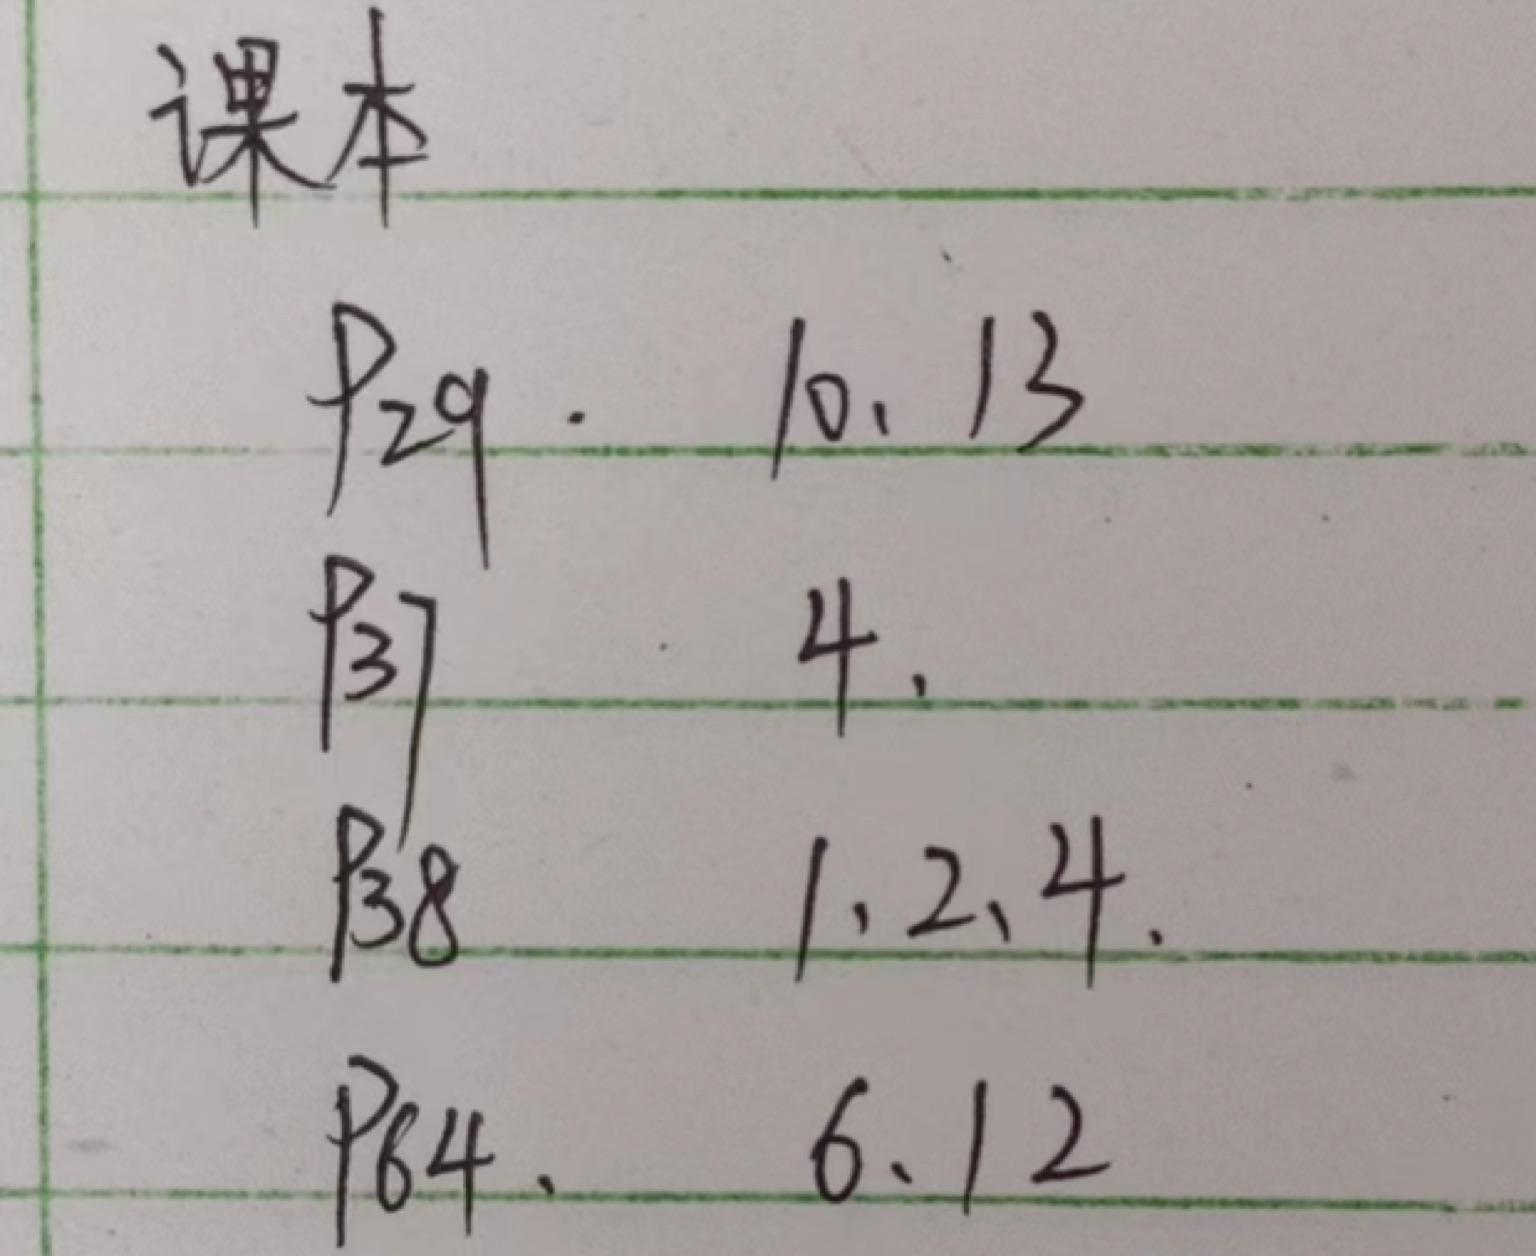 课本
P29. 10、13
P37 4、
P38 1、2、4、
P64、 6、12